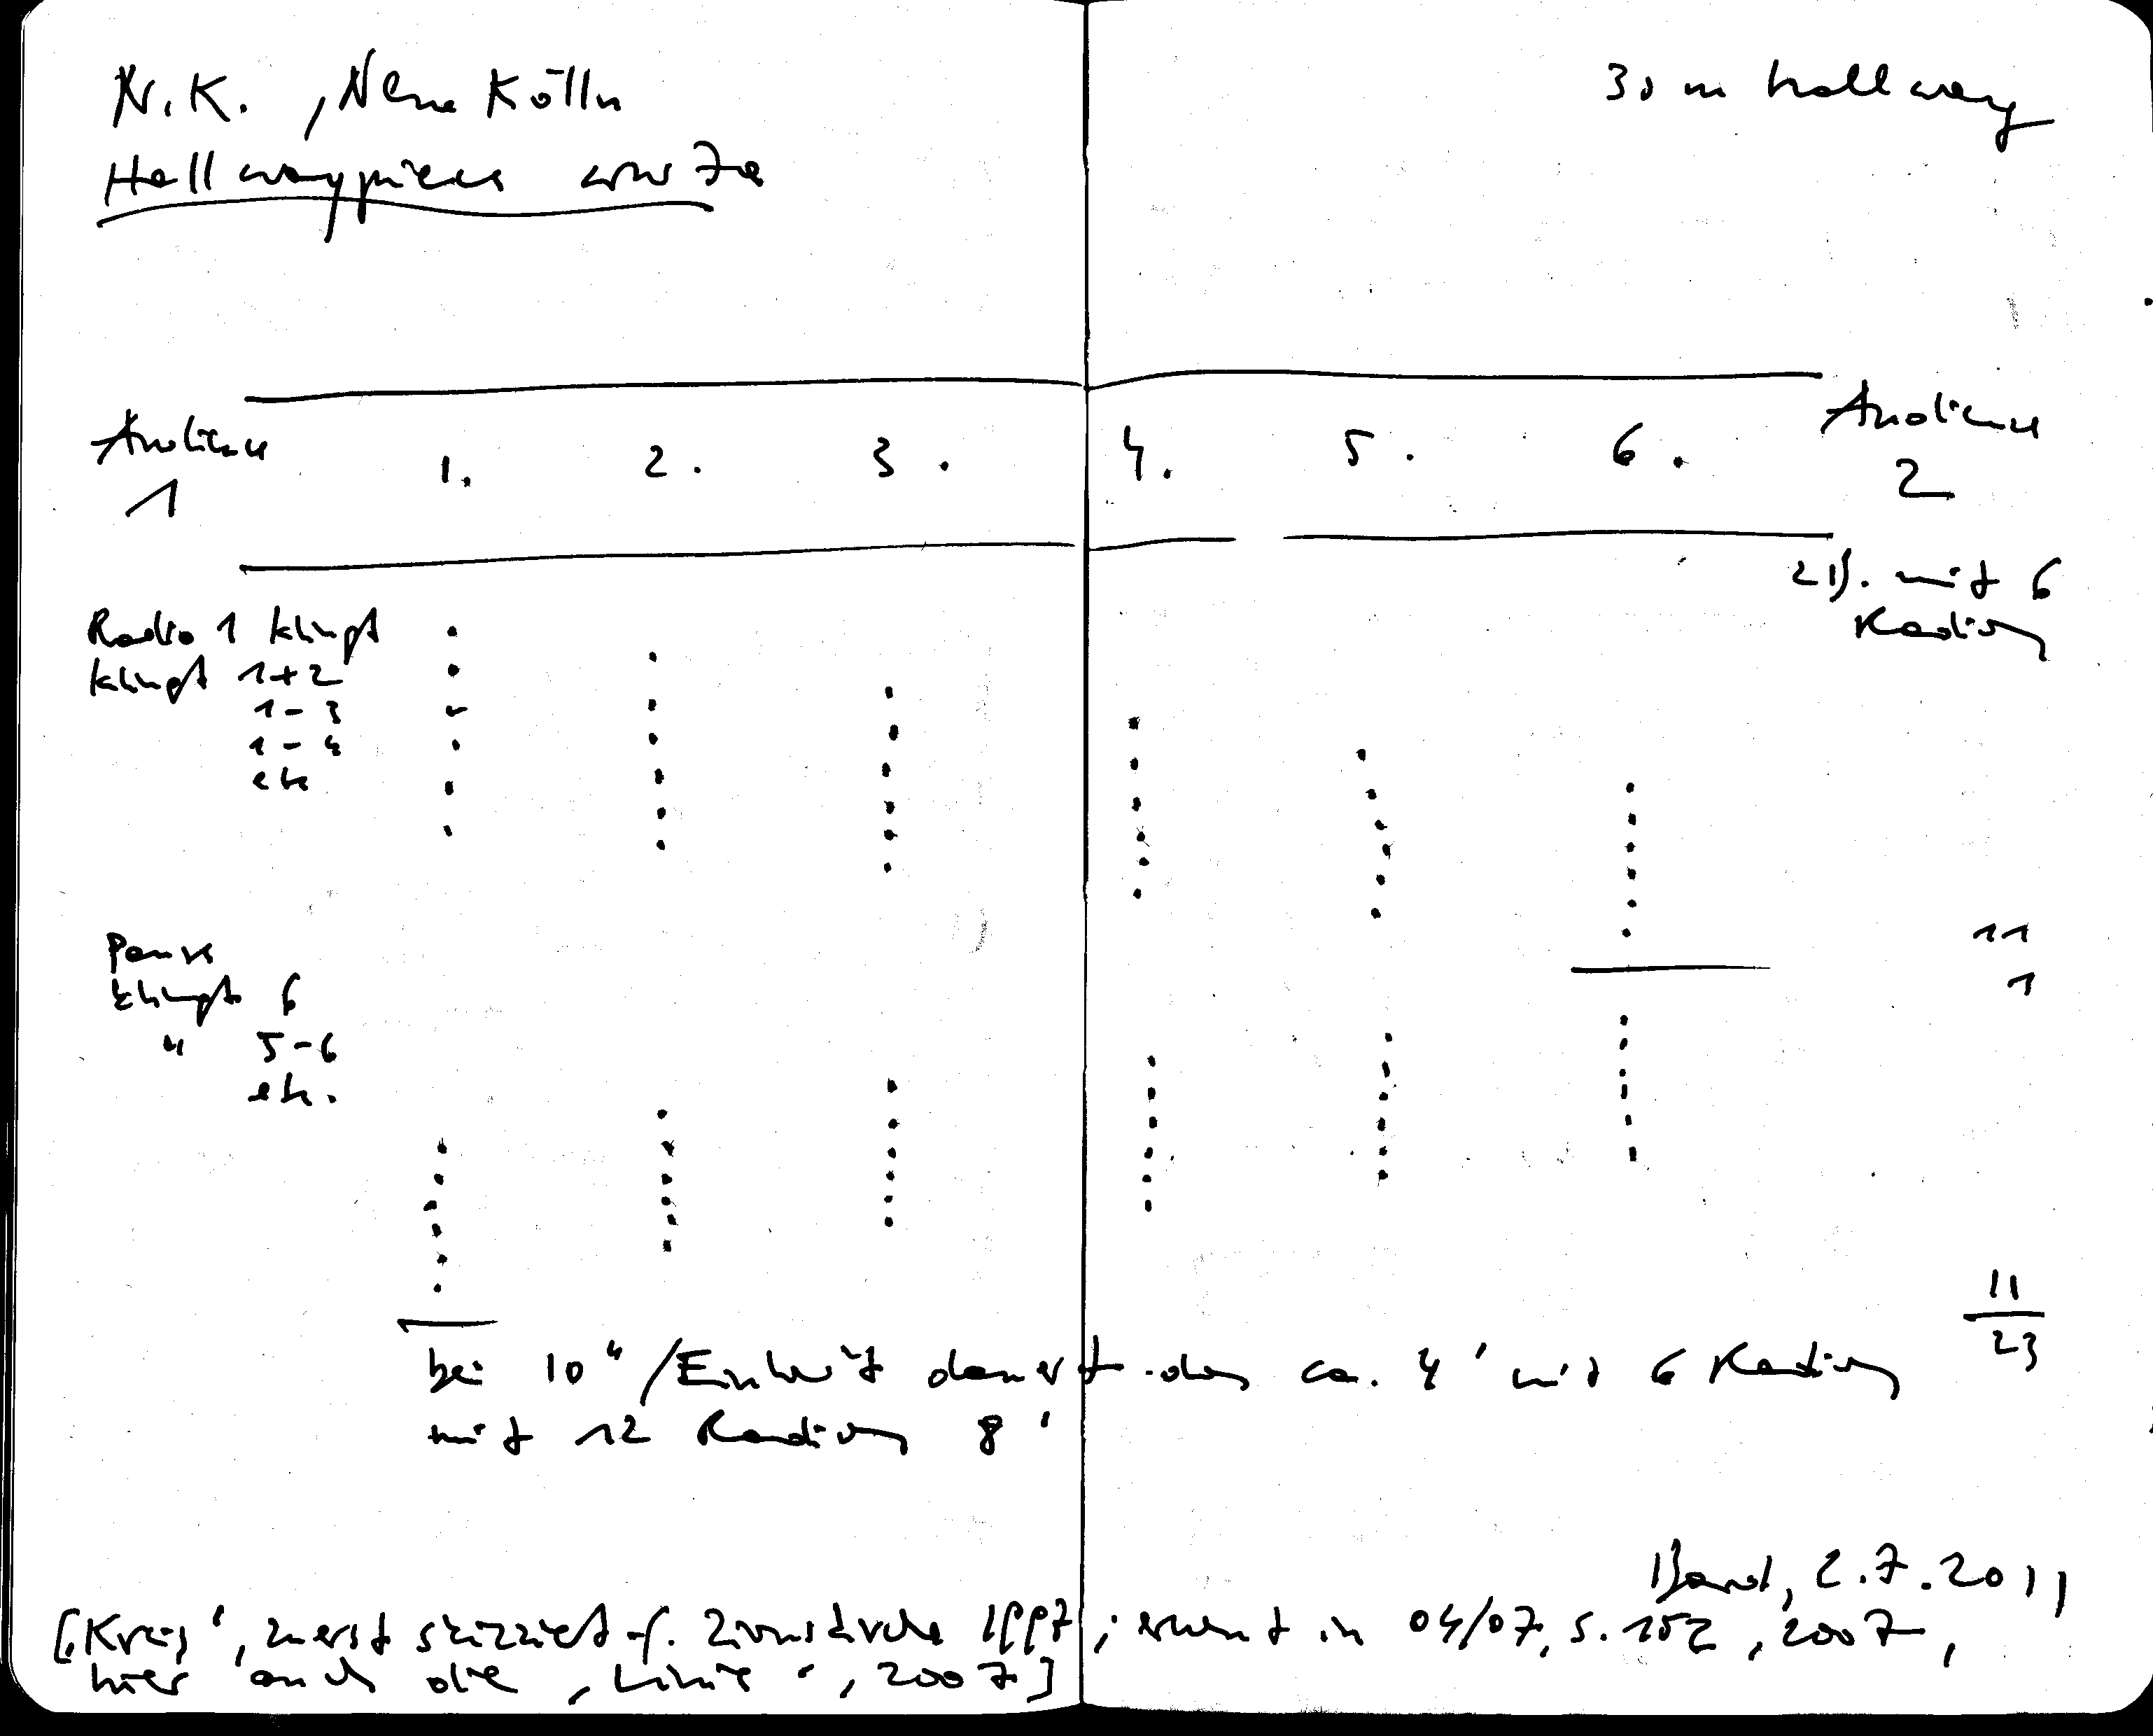 N.K. , Neue Kölln
30 m hallway
Hallwaypieces
Audience 1. 2. 3. 4. 5. 6. Audience
1 2
z.B. mit 6
Radios
Radio 1 klingt
klingt 1+2
1 - 3
1 - 4
etc
Pause
11
klingt 6
1
" 5-6
etc.
11
23
bei 10" /Einheit dauert das ca. 4' mit 6 Radios
mit 12 Radios 8'
Band, 2.7.2011
[,Kreis', zuerst skizziert f. 1997; erneut in 04/07, S. 152, 2007,
hier auch die ,Linie', 2007]